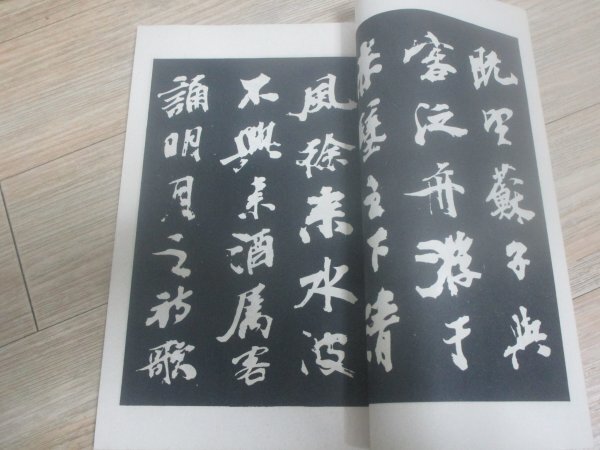 既望蘇子與
客泛舟游于
赤壁之下清
風徐来水波
不興舉酒属客
誦明月之詩歌